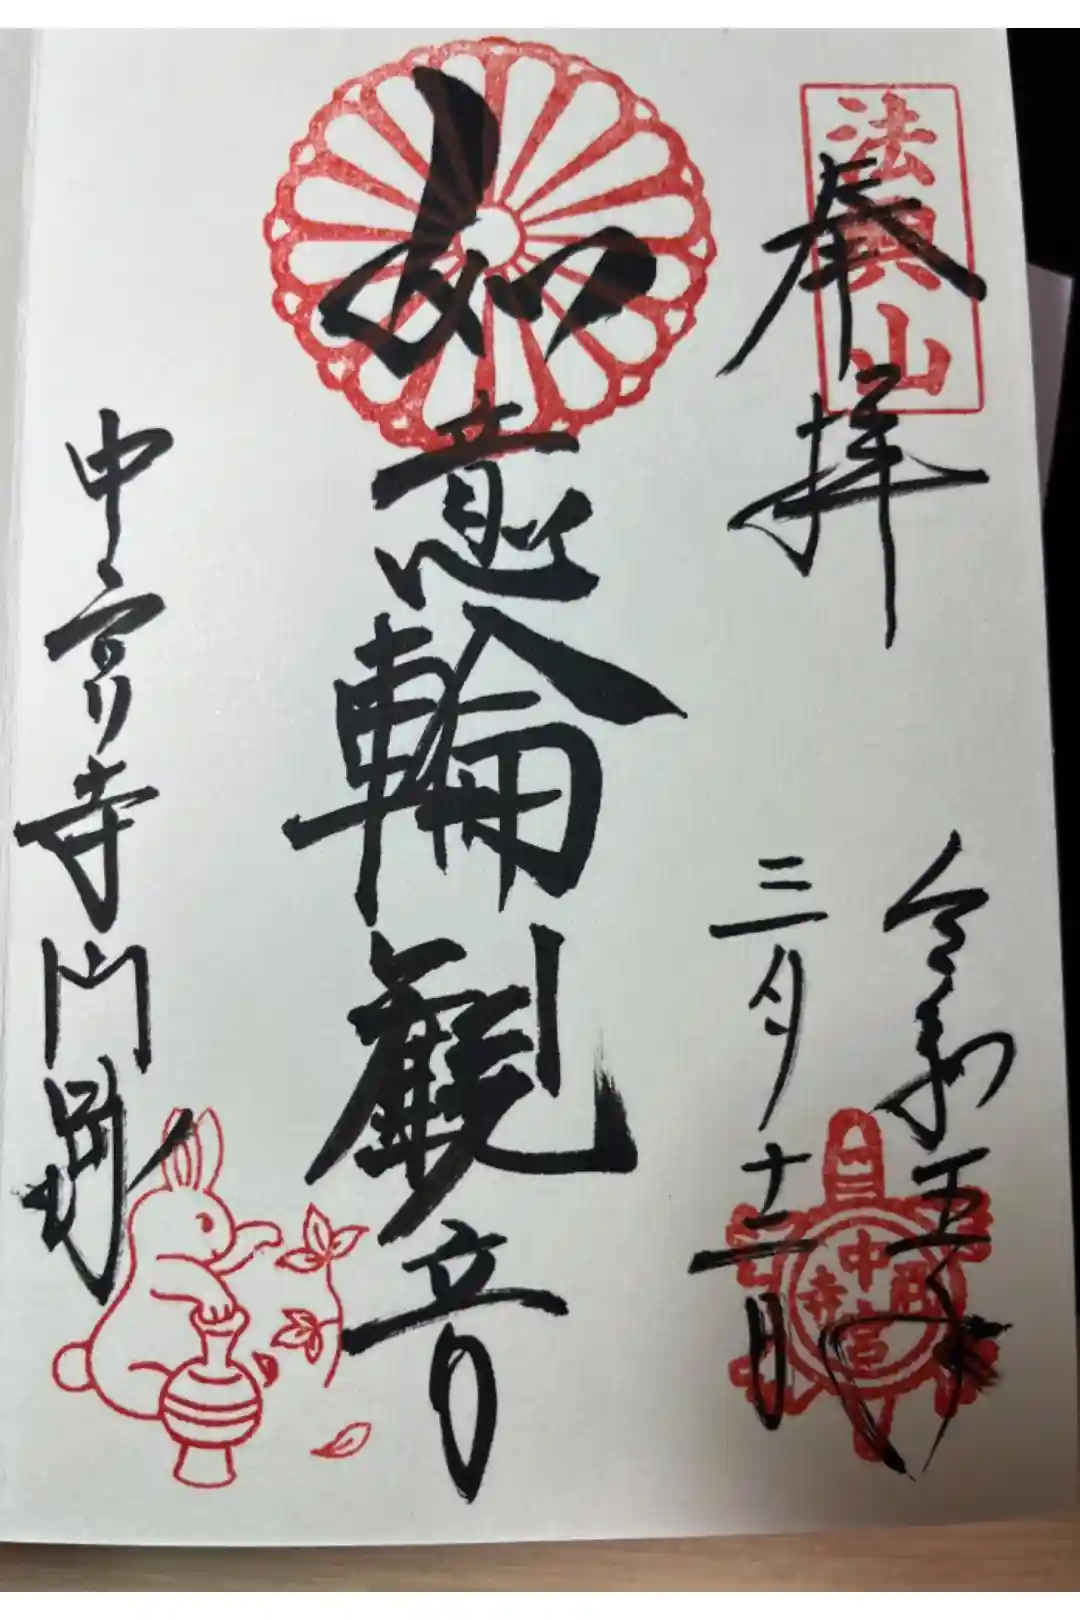 法興山
奉拝
令和五年
三月十二日
如意輪觀音
中宮寺門跡
中宮寺